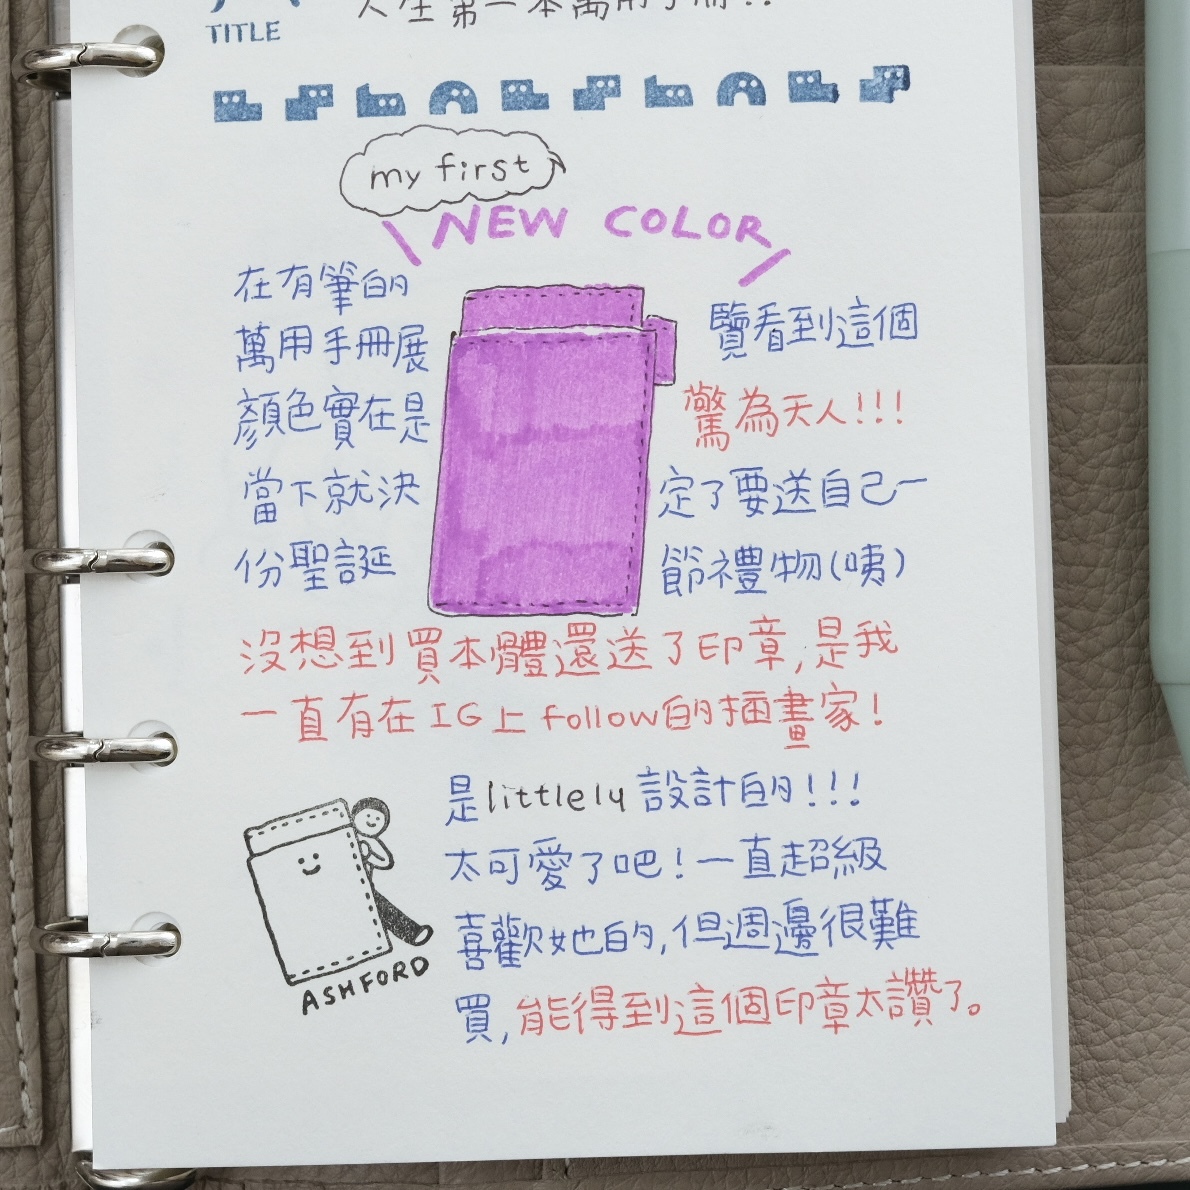 人生第一本萬用手冊!!
TITLE
my first
NEW COLOR
在有筆的
萬用手冊展覽看到這個
顏色實在是驚為天人!!!
當下就決定了要送自己一
份聖誕節禮物(咦)
沒想到買本體還送了印章,是我
一直有在IG上follow的插畫家!
是littlely設計的!!!
太可愛了吧!一直超級
喜歡她的,但週邊很難
買,能得到這個印章太讚了。
ASHFORD